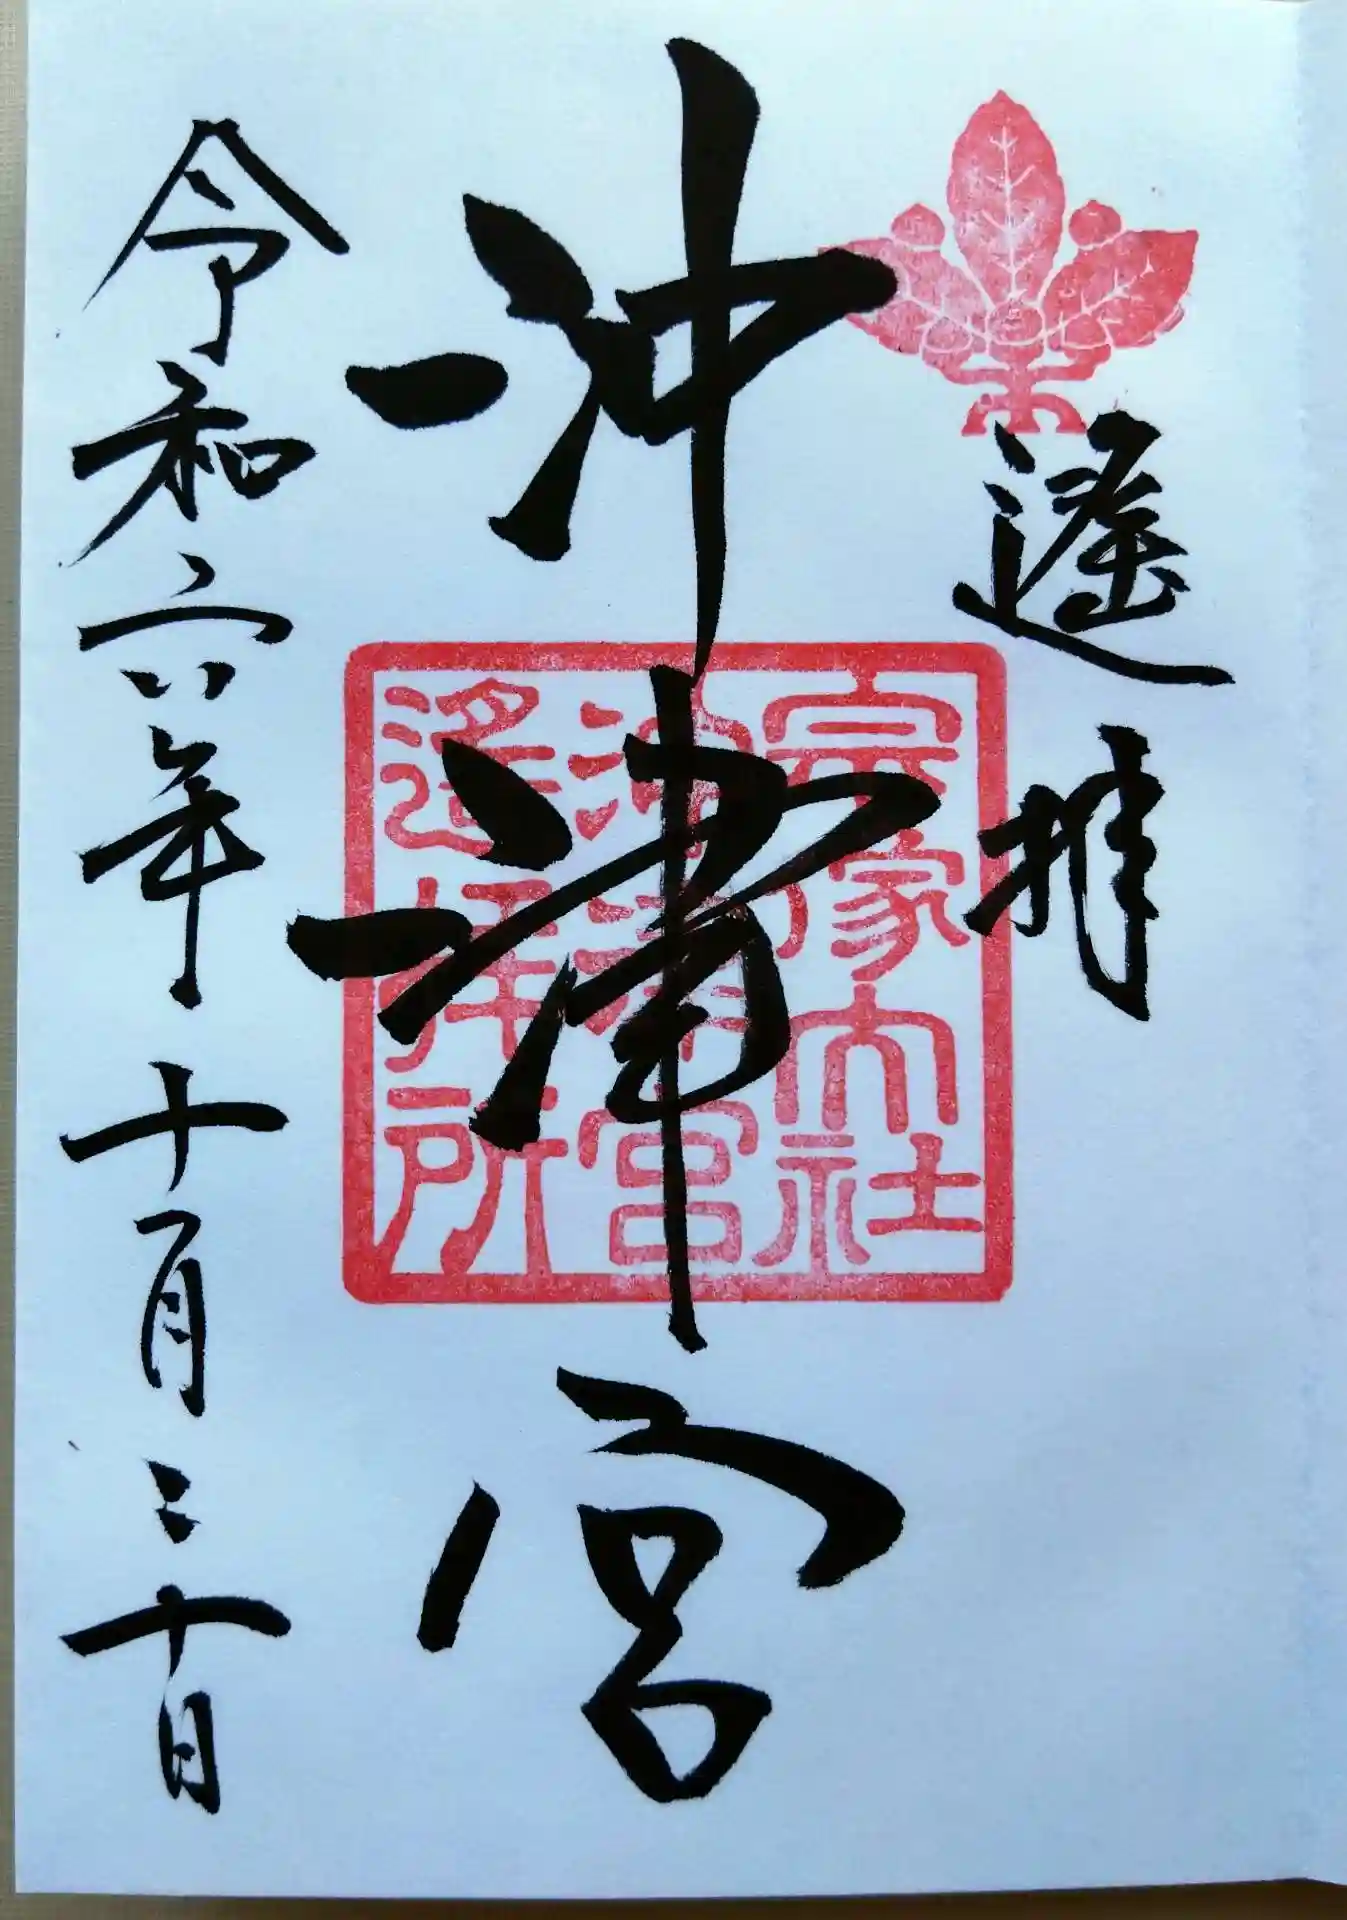 遙拝
沖津宮
宗像大社
沖津宮
遙拝所
令和六年十月二十日